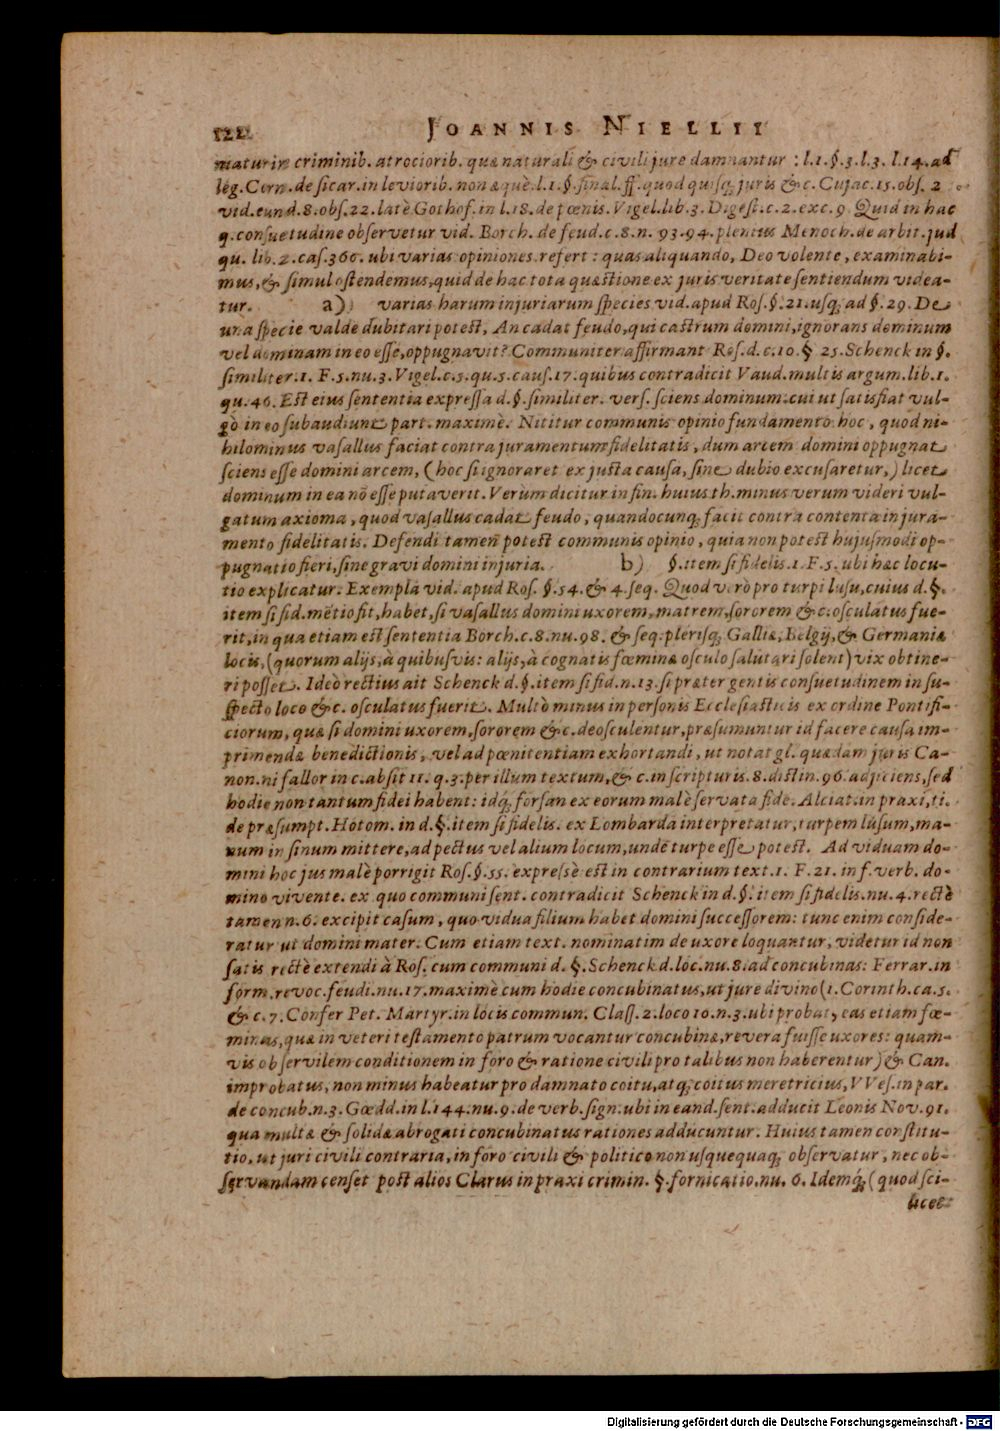 122 JOANNIS NIELLII
matur in criminib. atrociorib. quæ naturali & civili jure damnantur : l.1.§.3.l.3. l.14.ad
leg. Corn. de sicar. in leviorib. non æquè.l.1.§.final.ff.quod quisq; juris &c. Cujac.15.obs. 2
vid. eund.8.obs.22.latè Gothof. in l.18. de pœnis. Vigel.lib.3. Digest.c.2.exc.9. Quid in hac
q. consuetudine observetur vid. Borch. de feud.c.8.n. 93.94.plenius Menoch.de arbit.jud
qu. lib.2.cas.366. ubi varias opiniones refert : quas aliquando, Deo volente, examinabi-
mus, & simul ostendemus, quid de hac tota quæstione ex juris veritate sentiendum videa-
tur. a) varias harum injuriarum species vid. apud Ros.§.21.usq; ad §.29. De
una specie valde dubitari potest, An cadat feudo, qui castrum domini, ignorans dominum
vel dominam in eo esse, oppugnavit? Communiter affirmant Ros.d.c.10.§ 25.Schenck in §.
similiter.1. F.5.nu.3.Vigel.c.5.qu.5.caus.17.quibus contradicit Vaud.multis argum.lib.1.
qu.46. Est eius sententia expressa d.§.similiter. vers. sciens dominum.cui ut satisfiat vul-
gò in eo subaudiunt part. maximè. Nititur communis opinio fundamento hoc, quod ni-
hilominus vasallus faciat contra juramentum fidelitatis, dum arcem domini oppugnat
sciens esse domini arcem, (hoc si ignoraret ex justa causa, sine dubio excusaretur,) licet
dominum in ea nō esse putaverit. Verùm dicitur in fin. huius th. minus verum videri vul-
gatum axioma, quod vasallus cadat feudo, quandocunq; facit contra contenta in jura-
mento fidelitatis. Defendi tamen potest communis opinio, quia non potest hujusmodi op-
pugnatio fieri, sine gravi domini injuria. b) §.item si fidelis.1.F.5.ubi hæc locu-
tio explicatur. Exempla vid. apud Ros. §.54. & 4. seq. Quod verò pro turpi lusu, cuius d.§.
item si fid. mētio fit, habet, si vasallus domini uxorem, matrem, sororem &c. osculatus fue-
rit, in qua etiam est sententia Borch.c.8.nu.98. & seq. plerisq; Galliæ, Belgij, & Germaniæ
locis, (quorum alijs, à quibusvis: alijs, à cognatis fœminæ osculo salutari solent) vix obtine-
ri posset. Ideò rectius ait Schenck d.§.item si fid.n.13.si præter gentis consuetudinem in su-
specto loco &c. osculatus fuerit. Multò minus in personis Ecclesiasticis ex ordine Pontifi-
ciorum, quæ si domini uxorem, sororem &c. deosculentur, præsumuntur id facere causa im-
primendæ benedictionis, vel ad pœnitentiam exhortandi, ut notat gl. quædam juris Ca-
non. ni fallor in c.absit 11. q.3.per illum textum, & c. in scripturis.8.distin.96.adjiciens, sed
hodie non tantum fidei habent: idq; forsan ex eorum malè servata fide. Alciat.in praxi,ti.
de præsumpt. Hotom. in d.§.item si fidelis. ex Lombarda interpretatur, turpem lusum, ma-
num in sinum mittere, ad pectus vel alium locum, unde turpe esse potest. Ad viduam do-
mini hoc jus malè porrigit Ros.§.55. expressè est in contrarium text.1. F.21. in f. verb. do-
mino vivente. ex quo communi sent. contradicit Schenck in d.§.item si fidelis.nu.4.rectè
tamen n.6. excipit casum, quo vidua filium habet domini successorem: tunc enim conside-
ratur ut domini mater. Cum etiam text. nominatim de uxore loquantur, videtur id non
satis rectè extendi à Ros. cum communi d. §.Schenck d.loc.nu.8.ad concubinas: Ferrar.in
form. revoc. feudi.nu.17.maximè cum hodie concubinatus, ut jure divino (1.Corinth.ca.5.
& c.7. Confer Pet. Martyr.in locis commun. Class.2.loco 10.n.3.ubi probat, eas etiam fœ-
minas, quæ in veteri testamento patrum vocantur concubinæ, revera fuisse uxores: quam-
vis ob servilem conditionem in foro & ratione civili pro talibus non haberentur) & Can.
improbatus, non minus habeatur pro damnato coitu, atq; coitus meretricius, VVes.in par.
de concub.n.3. Gœdd.in l.144.nu.9.de verb.sign.ubi in eand.sent.adducit Leonis Nov.91.
qua multæ & solidæ abrogati concubinatus rationes adducuntur. Huius tamen constitu-
tio, ut juri civili contraria, in foro civili & politico non usquequaq; observatur, nec ob-
servandam censet post alios Clarus in praxi crimin. §.fornicatio.nu. 6. Idemq; (quod sci-
licet
Digitalisierung gefördert durch die Deutsche Forschungsgemeinschaft - DFG